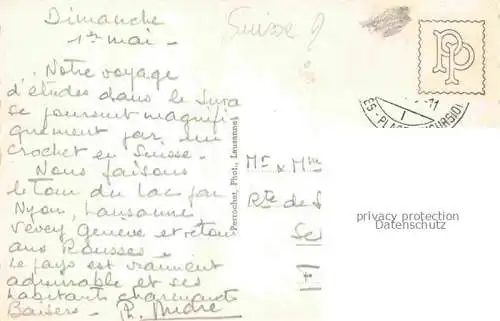 Dimanche
1er mai -
Suisse ?
... Notre voyage
d'études dans le Jura
se poursuit magnifi
quement par un
crochet en Suisse -
Nous faisons
le tour du Lac par
Nyon, Lausanne
Vevey Genève et retour
aux Rousses -
Le pays est vraiment
admirable et ses
habitants charmants
Baisers - R. André
Perrochet, Phot., Lausanne
PP
-11
I
ES - PLACE
Mr & Mme
Rte de S
Se
F
privacy protection
Datenschutz